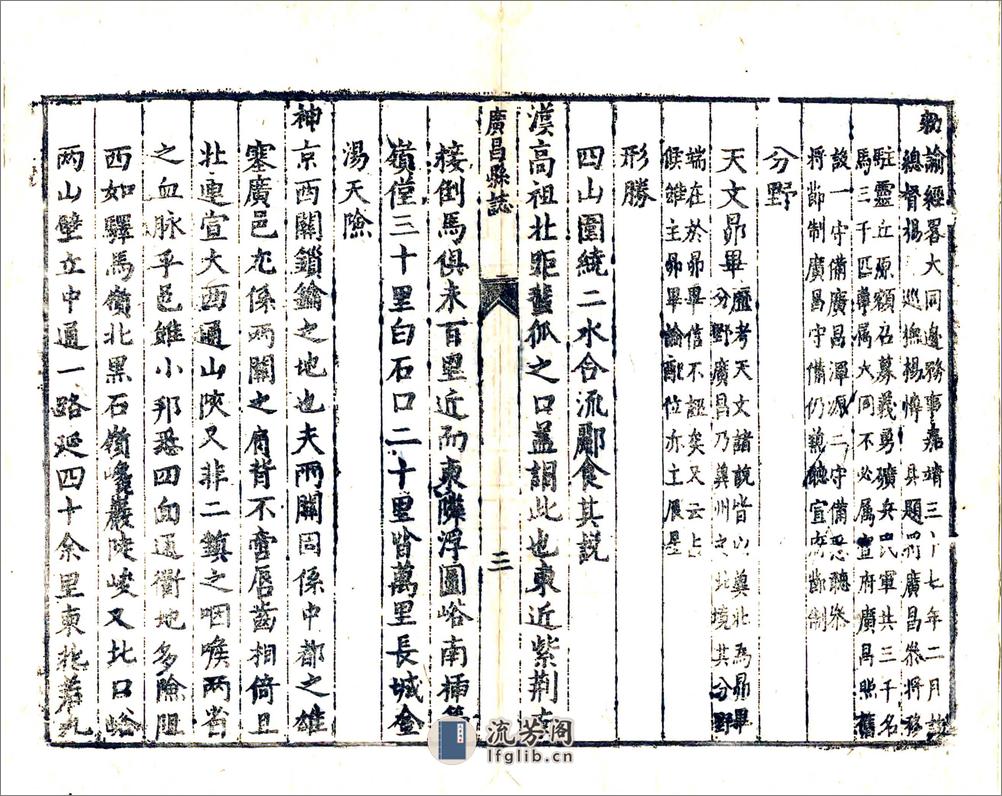 敕諭經畧大同邊務事嘉靖三十七年二月
總督楊巡撫楊博具題將廣昌叅將移
駐靈丘原額召募義勇礦兵民軍共三千名
馬三千匹專属大同不必属宣府廣昌照舊
設一守備廣昌渾源二守備悉聽叅
將節制廣昌守備仍兼聽宣府節制
分野
天文昴畢分野
歷考天文諸說皆以冀北為昴畢
廣昌乃冀州之北境其分野
端在於昴畢信不誣矣又云占
候雖主昴畢論配位亦主辰星
形勝
四山圍繞二水合流酈食其說
漢高祖北距蜚狐之口盖謂此也東近紫荆
廣昌縣誌
三
接倒馬俱未百里近而東隣浮圖峪南插
嶺僅三十里白石口二十里皆萬里長城金
湯天險
神京西關鎖鑰之地也夫兩關固係中都之雄
塞廣邑尤係兩關之肩背不啻唇齒相倚且
北連宣大西通山陝又非二鎮之咽喉兩省
之血脉乎邑雖小邦恐四面通衢地多險阻
西如驛馬嶺北黑石嶺巉巖陡峻又北口峪
兩山壁立中通一路延四十余里東
流芳阁
lfglib.cn